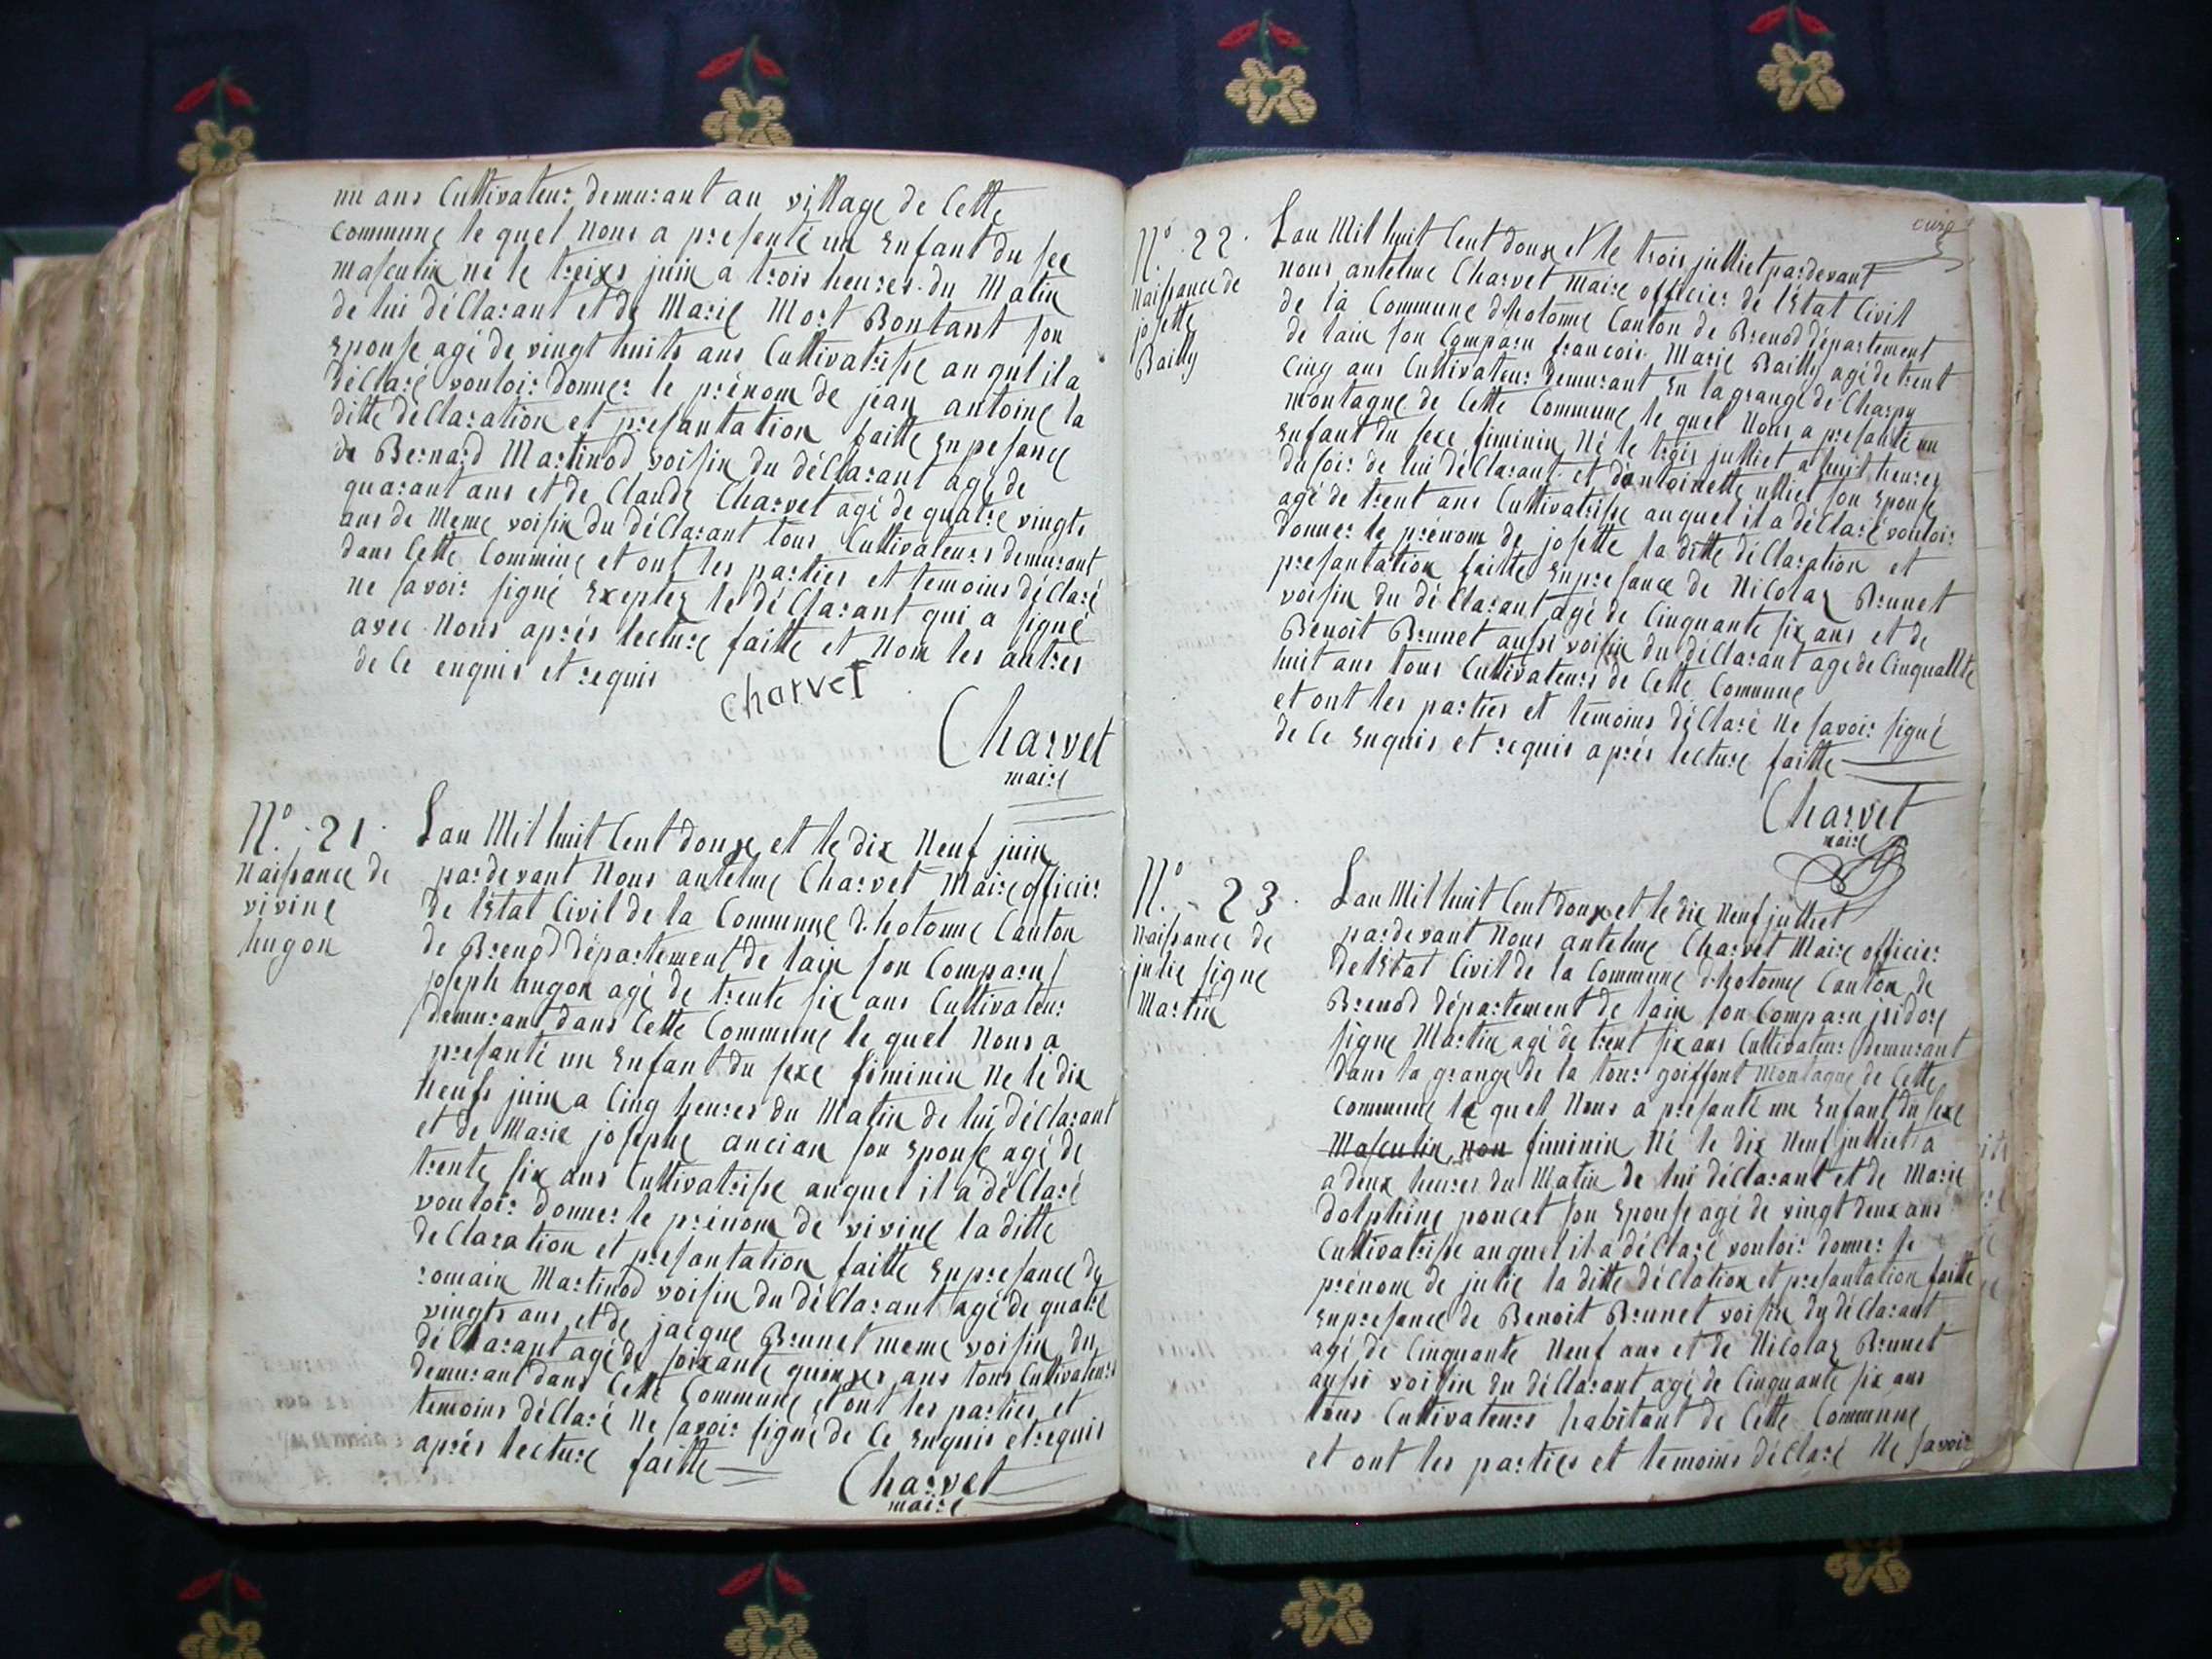 un ans Cultivateur demurant au village de Cette
Commune le quel Nous a presenté un Enfant du sec
masculin né le treixs juin a trois heures du Matin
de lui déClarant et de Marie Mort Bontant son
Epouse agé de vingt huits ans Cultivatrisse au qul il a
déClaré vouloir donner le prénom de jean antoine la
ditte déClaration et presantation faitte En pesance
de Bernard Martinod voisin du déClarant agé de
quarant ans et de Claude Charvet agé de quatre vingts
ans de Meme voisin du déClarant tous Cultivateurs demurant
dans Cette Commine et ont les parties et temoins déClaré
ne savoir signé Exeptez le déClarant qui a signé
avec Nous aprés lecture faitte et Nom les autres
de Ce enquis et requis
charvet
Charvet
maire
N.º 21.
Naissance de
vivine
hugon
Lan Mil huit Cent douxe et le dix Neuf juin
pardevant Nous antelme Charvet Maire officier
de lEtat Civil de la Commune d.hotonne Canton
de Brenod département de lain son Comparu
joseph hugon agé de trente six ans Cultivateur
demurant dans Cette Commune le quel Nous a
presanté un Enfant du sexe féminin Ne le dix
Neufs juin a Cinq heures du Matin de lui déClarant
et de Marie josephe ancian son Epouse agé de
trente six ans Cultivatrisse auquel il a déClaré
vouloir donner le prénom de vivine la ditte
deClaration et presantation faitte En presance de
romain Martinod voisin du déClarant agé de quatre
vingts ans et de jacque Brunet meme voisin du
déClarant agé de soixante quinxes ans tous Cultivateurs
demurant dans Cette Commune et ont les parties et
temoins déClaré Ne savoir signé de Ce Enquis et requis
aprés lecture faitte
Charvet
maire
N.º 22.
Naissance de
josette
Bailly
Lan Mil huit Cent douxe et le trois julliet pardevant
nous antelme Charvet Maire officier de lEtat Civil
de la Commune d'hotonne Canton de Brenod département
de lain son Comparu francois Marie Bailly agé de trent
Cinq ans Cultivateur demurant En la grange de Charpy
montagne de Cette Commune le quel Nous a presanté un
Enfant du sexe féminin Né le trois julliet a huit heures
du soir de lui déClarant et dantoinette ulliet son Epouse
agé de trent ans Cultivatrisse auquel il a déClaré vouloir
donner le prénom de josette la ditte déClaration et
presantation faitte En presance de Nicolas Brunet
voisin du déClarant agé de Cinquante six ans et de
Benoit Brunet aussi voisin du déClarant age de Cinquante
huit ans tous Cultivateurs de Cette Commune
et ont les parties et témoins déClaré Ne savoir signé
de Ce Enquis et requis aprés lecture faitte
Charvet
maire
N.º 23.
Naissance de
julie signe
Martin
Lan Mil huit Cent douxe et le dix Neuf julliet
pardevant Nous antelme Charvet Maire officier
de lEtat Civil de la Commune d.hotonne Canton de
Brenod département de lain son Comparu jsidore
signe Martin agé de trent six ans Cultivateur demurant
dans la grange de la tour goiffont Montagne de Cette
Commune le quel Nous a présanté un Enfant du sexe
Masculin, non féminin Né le dix Neuf julliet a
a deux heures du Matin de lui déClarant et de Marie
dolphine poncet son Epouse agé de vingt deux ans
Cultivatrisse auquel il a déClaré vouloir donner le
prénom de julie la ditte déClation et presantation faitte
En presance de Benoit Brunet voisin du déClarant
agé de Cinquante Neuf ans et de Nicolas Brunet
aussi voisin du déClarant agé de Cinquante six ans
tous Cultivateurs habitant de Cette Commune
et ont les parties et temoins déClaré Ne savoir